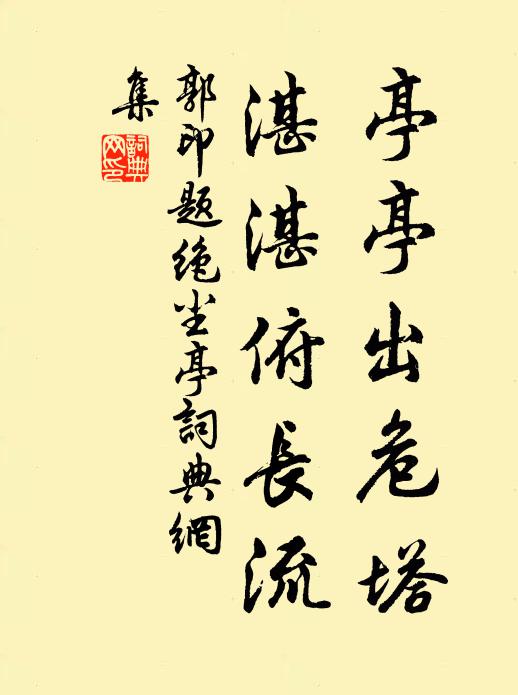 亭亭出危塔
湛湛俯長流
郭印題绝尘亭詞典網
集
詞典
网印